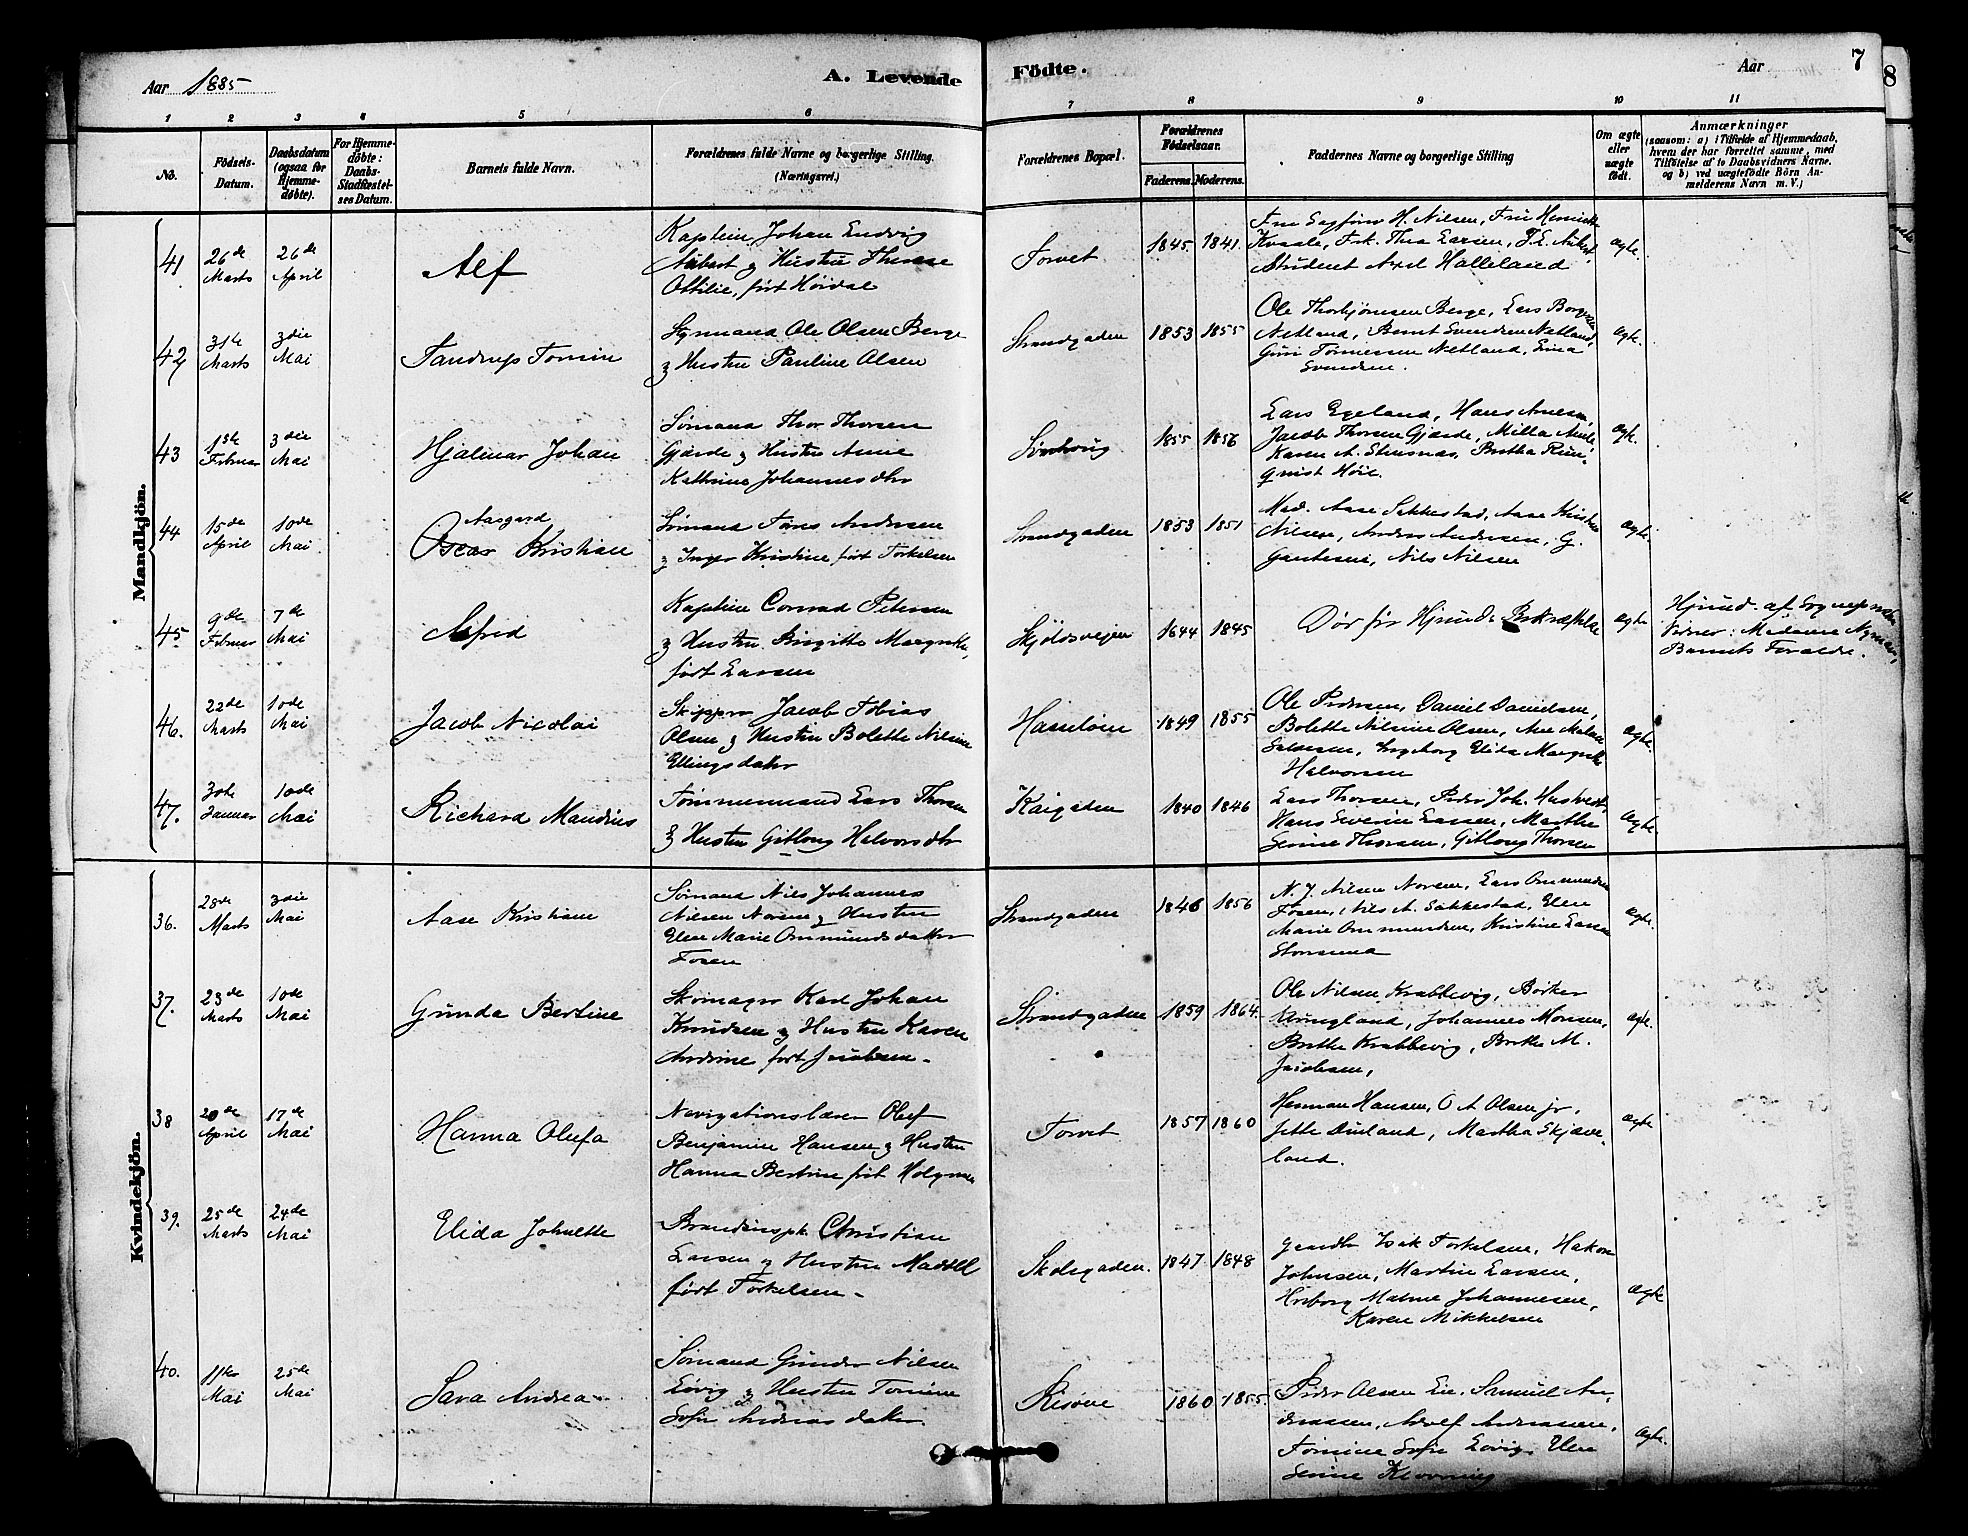 Aar 1885
A. Levende
Födte.
Aar
7
8
1 2 3 4 5 6 7 8 9 10 11
No.
Födsels-
Datum.
Daabsdatum
(ogsaa for
Hjemme-
döbte).
For Hjemme-
döbte:
Daabs-
Stadfæstel-
ses Datum.
Barnets fulde Navn.
Forældrenes fulde Navne og borgerlige Stilling.
(Næringsvei.)
Forældrenes Bopæl.
Forældrenes
Födselsaar.
Faderens. Moderens.
Faddernes Navne og borgerlige Stilling
Om ægte
eller
uægte
födt.
Anmærkninger
(saasom: a) i Tilfælde af Hjemmedaab,
hvem der har forrettet samme, med
Tilföielse af to Daabsvidners Navne.
og b) ved uægtefödte Börn An-
melderens Navn m. V.)
Mandkjön.
41
26de
Marts
26de
April
Alf
Kaptein Johan Ludvig
Aubert & Hustru Therese
Ottilie, født Høidal
Torvet
1845 1841.
Fru Sagfører H. Nilsen, Fru
Kvaale, Frk. Thea Larsen,
Student Axel Halleland
Ægte.
42
31te
Marts
3die
Mai
Tandrup Tomin
Styrmand Ole Olsen Berge
& Hustru Pauline Olsen
Strandgaden
1853 1855
Ole Thorbjørnsen Berge, Lars
Netland, Bernt Svendsen Netland,
Guri Tønnessen Netland,
Svendsen.
Ægte.
43
1ste
Februar
3die
Mai
Hjalmar Johan
Sømand Thor Thorsen
Gjærde & Hustru Anne
Kathrine Johannesdtr
Sørhoug
1855 1856
Lars Egeland, Hans Arnesen,
Jacob Thorsen Gjærde, Milla
Karen A. Stensnæs, Bertha
Høie.
Ægte.
44
15de
April
10de
Mai
Aasgard
Oscar Kristian
Sømand Tøres Andersen
& Inger Kristine født Torkelsen
Strandgaden
1853 1851
Mad. Aase Sakkestad, Aase
Nilsen, Anders Andersen, G.
Nils Nilsen
Ægte.
45
9de
Februar
7de
Mai
Alfred
Kaptein Conrad Petersen
& Hustru Birgitte Margrethe,
født Larsen
Skjoldsvejen
1844 1845
Dør før Hjmd. Bekræftelse
Ægte
Hjmd. af Sognepræsten
Vidner: Madame Nyman,
Barnets Forældre.
46.
22de
Marts
10de
Mai
Jacob Nicolai
Skipper Jacob Tobias
Olsen & Hustru Bolette Nilsine
Ellingsdatter
Hasseløen
1849 1855
Ole Pedersen, Daniel Danielsen,
Bolette Nilsine Olsen, Ane
Ingeborg Elida Margrethe
Halvorsen
Ægte.
47.
30te
Januar
10de
Mai
Richard Maudius
Tømmermand Lars Thorsen
& Hustru Gitlaug Halvorsdtr
Kaigaden
1840 1846
Lars Thorsen, Peder Joh.
Hans Severin Larsen, Marthe
Serine Thorsen, Gitlaug Thorsen
Ægte.
Kvindekjön.
36.
28de
Marts
3die
Mai
Aase Kristiane
Sømand Nils Johannes
Nilsen Norsen & Hustru
Elen Marie Ommundsdatter
Fosen
Strandgaden
1846 1856
N. J. Nilsen Norsen, Lars Ommundsen
Fosen, Nils A. Sakkestad, Elen
Marie Ommundsen, Kristine Larsen
Ægte.
37.
23de
Marts
10de
Mai
Gunda Bertine
Skomager Karl Johan
Knudsen & Hustru Karen
Andrine født Jacobsen -
Strandgaden
1859 1864.
Ole Nilsen Krabbevig,
Johannes Monsen,
Berthe Krabbevig, Berthe M.
Jacobsen,
Ægte.
38
20de
April
17de
Mai
Hanna Olufa
Navigationslærer Oluf
Benjamin Hansen & Hustru
Hanna Bertine født
Torvet
1857 1860
Herman Hansen, O A Olsen jr,
Jette Dueland, Martha Skjæve-
land.
Ægte
39.
25de
Marts
24de
Mai
Elida Johnette
Christian
Larsen & Hustru Maddel
født Torkelsen -
Skolegaden.
1847 1848
Gaardb. Isak Torkelsen, Hakon
Johnsen, Martin Larsen,
Malene Johannesen,
Karen Mikkelsen
Ægte
40.
11te
Mai
25de
Mai
Sara Andrea
Sømand Gunder Nilsen
Løvig & Hustru Tomine
Sofie Andreasdatter
Risøen
1860 1855.
Peder Olsen Lie, Samuel An-
dreassen, Adolf Andreassen,
Tomine Sofie Løvig, Elen
Serine
Ægte.